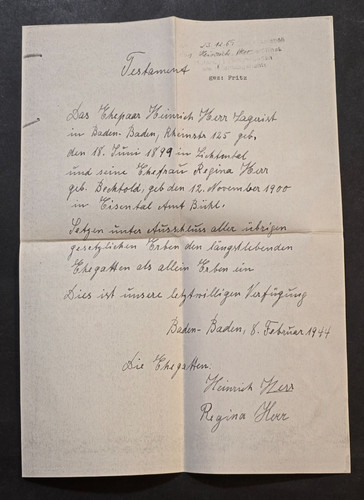 Testament
gez: Fritz
Das Ehepaar Heinrich Herr Lagerist
in Baden-Baden, Rheinstr 125 geb.
den 18. Juni 1899 in Lichtental
und seine Ehefrau Regina Herr
geb. Bechtold, geb den 12. November 1900
in Eisental Amt Bühl.
Setzen unter Ausschluss aller übrigen
gesetzlichen Erben den längstlebenden
Ehegatten als allein Erben ein
Dies ist unsere letztwilligen Verfügung
Baden-Baden, 8. Februar 1944
Die Ehegatten.
Heinrich Herr
Regina Herr